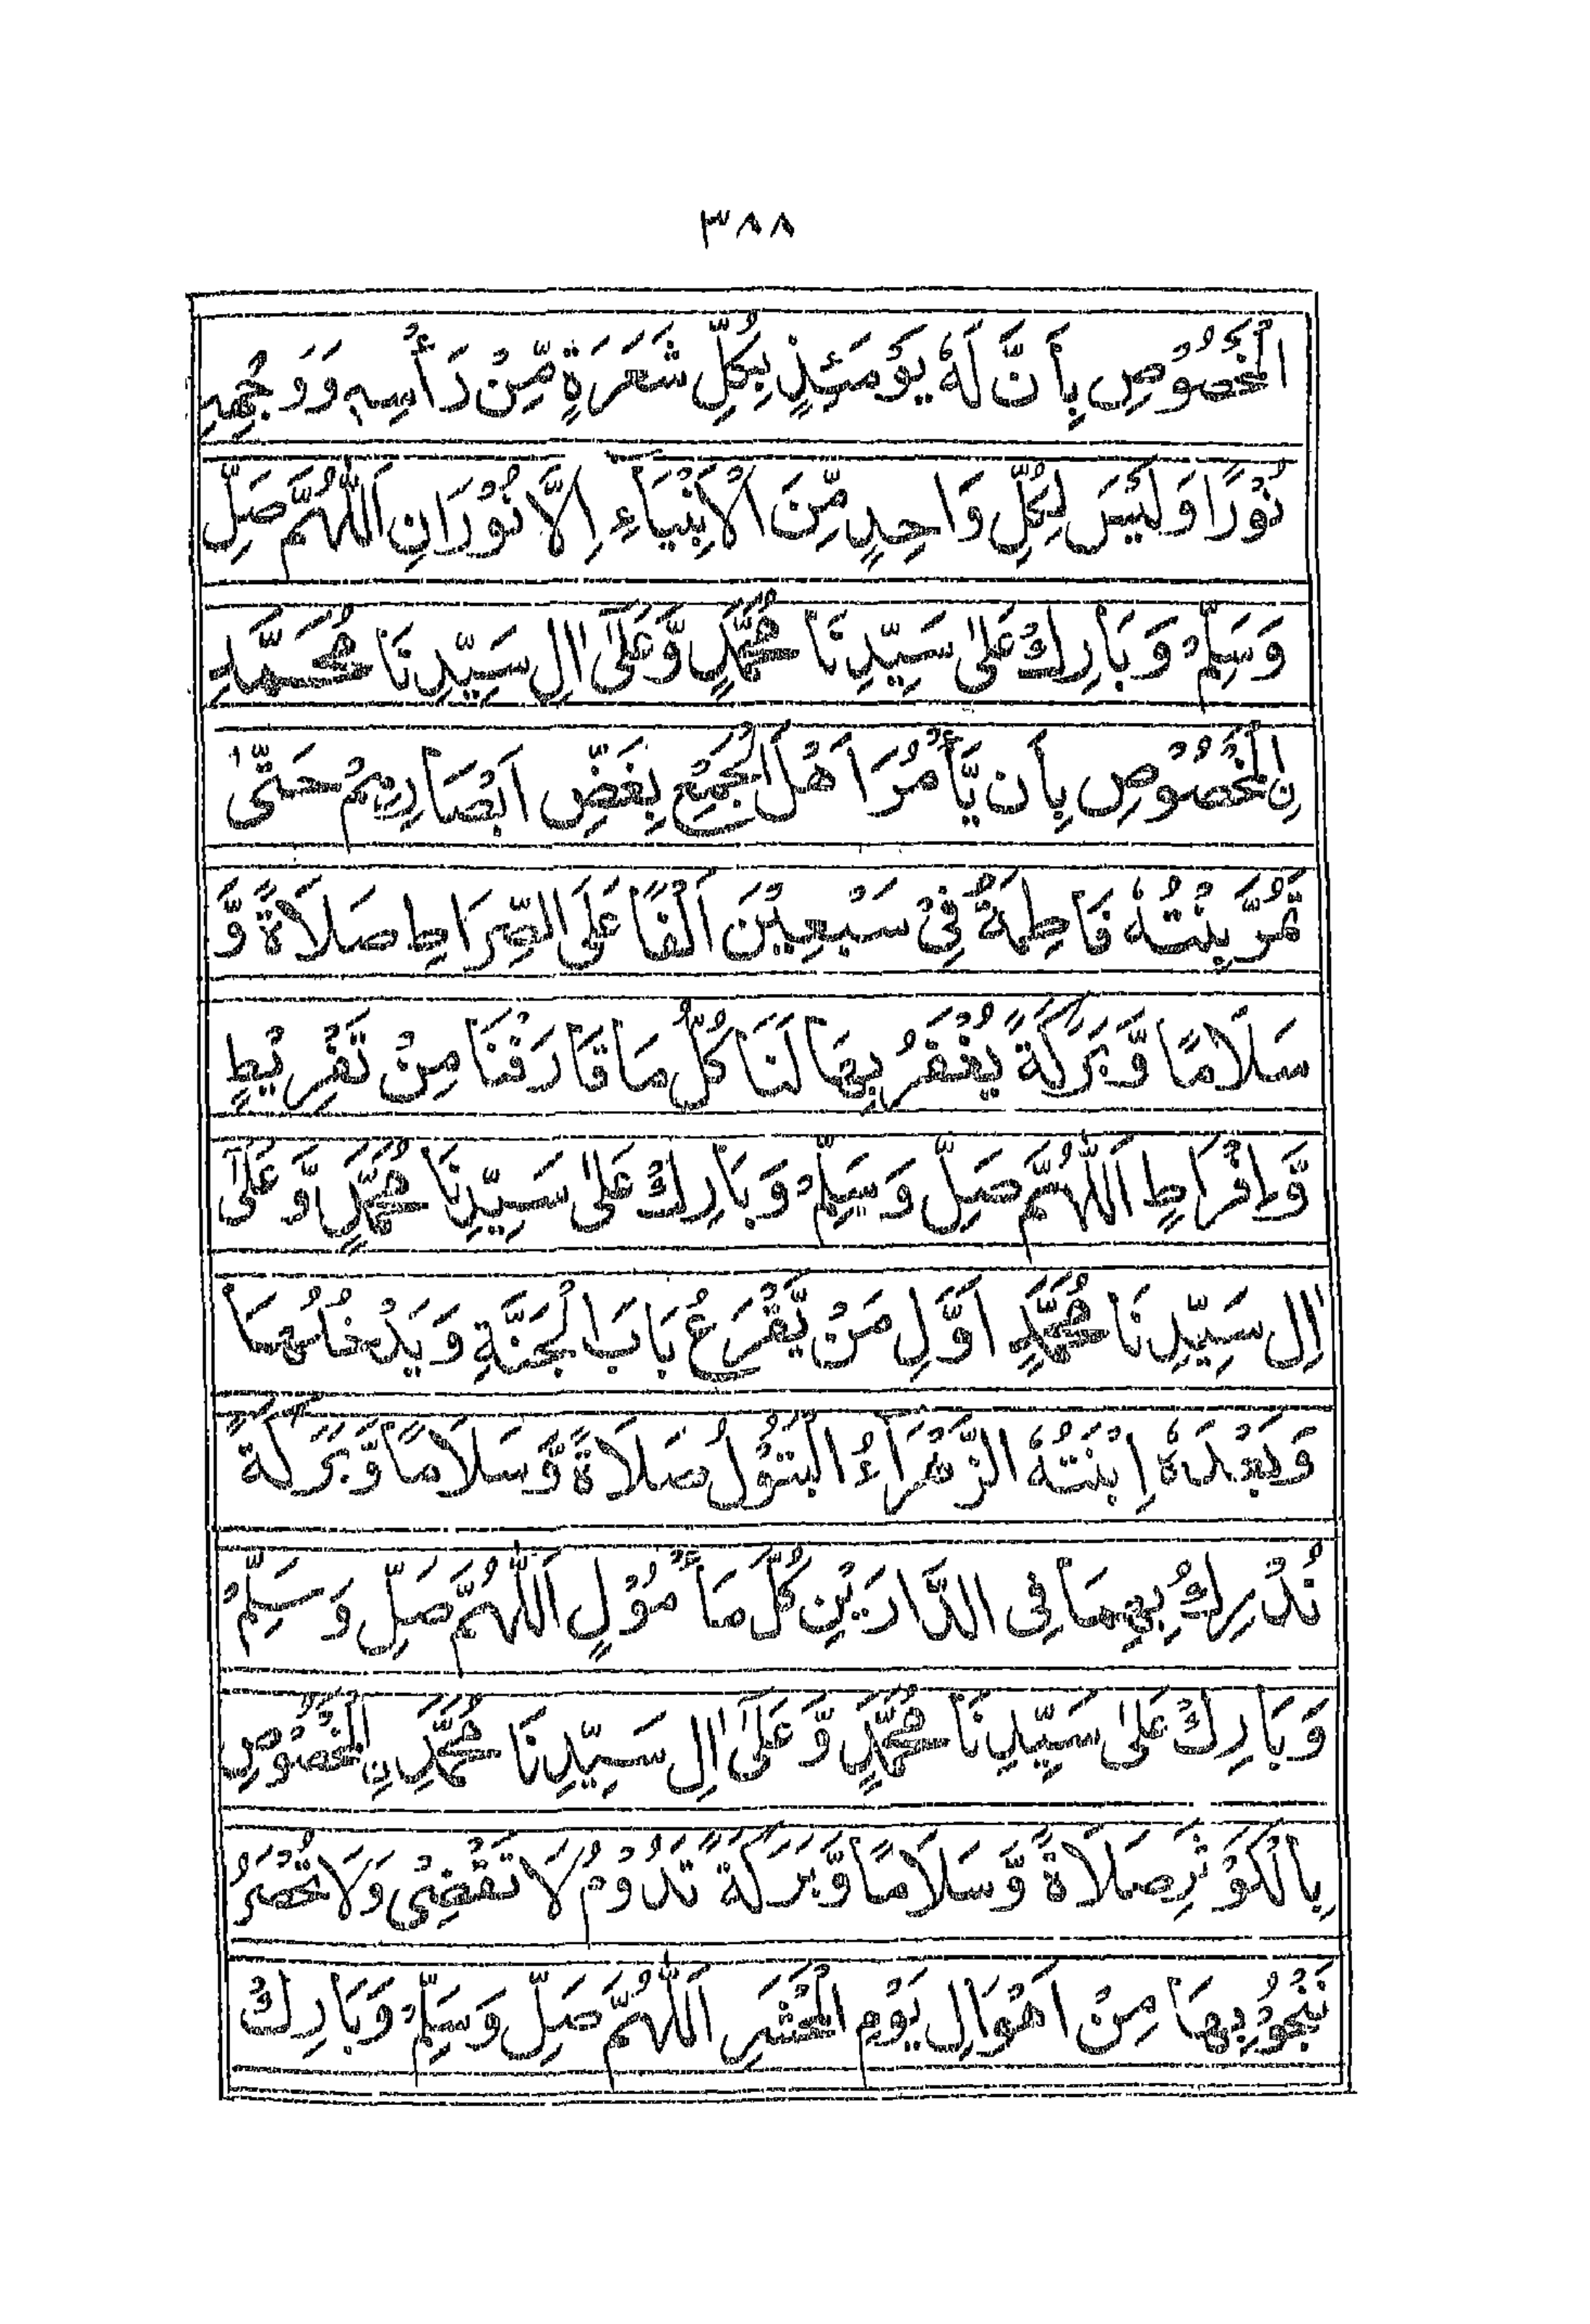 ٣٨٨
الْمَخْصُوْصِ بِأَنَّ لَهٗ يَوْمَئِذٍ بِكُلِّ شَعَرَةٍ مِّنْ رَأْسِهٖ وَوَجْهِهٖ
نُوْرًا وَلَيْسَ لِكُلِّ وَاحِدٍ مِّنَ الْاَنْبِيَاءِ اِلَّا نُوْرَانِ اَللّٰهُمَّ صَلِّ
وَسَلِّمْ وَبَارِكْ عَلٰى سَيِّدِنَا مُحَمَّدٍ وَّعَلٰٓى اٰلِ سَيِّدِنَا مُحَمَّدِ
نِ الْمَخْصُوْصِ بِأَن يَّأْمُرَ اَهْلَ الْجَمْعِ بِغَضِّ اَبْصَارِهِمْ حَتّٰى
تَمُرَّ بِنْتُهٗ فَاطِمَةُ فِىْ سَبْعِيْنَ اَلْفًا عَلَى الصِّرَاطِ صَلَاةً وَّ
سَلَامًا وَّبَرَكَةً يُغْفَرُ بِهَا لَنَا كُلُّ مَا قَارَفْنَا مِنْ تَفْرِيْطٍ
وَّاِفْرَاطٍ اَللّٰهُمَّ صَلِّ وَسَلِّمْ وَبَارِكْ عَلٰى سَيِّدِنَا مُحَمَّدٍ وَّعَلٰٓى
اٰلِ سَيِّدِنَا مُحَمَّدٍ اَوَّلِ مَنْ يَّقْرَعُ بَابَ الْجَنَّةِ وَيَدْخُلُهَا
وَبَعْدَهٗ اِبْنَتُهُ الزَّهْرَآءُ الْبَتُوْلُ صَلَاةً وَّسَلَامًا وَّبَرَكَةً
نُدْرِكُ بِهِمَا فِى الدَّارَيْنِ كُلَّ مَأْمُوْلٍ اَللّٰهُمَّ صَلِّ وَسَلِّمْ
وَبَارِكْ عَلٰى سَيِّدِنَا مُحَمَّدٍ وَّعَلٰٓى اٰلِ سَيِّدِنَا مُحَمَّدِ نِ الْمَخْصُوْصِ
بِالْكَوْثَرِ صَلَاةً وَّسَلَامًا وَّبَرَكَةً تَدُوْمُ لَا تَنْقَضِىْ وَلَا تُحْصَرُ
نَنْجُوْ بِهَا مِنْ اَهْوَالِ يَوْمِ الْمَحْشَرِ اَللّٰهُمَّ صَلِّ وَسَلِّمْ وَبَارِكْ